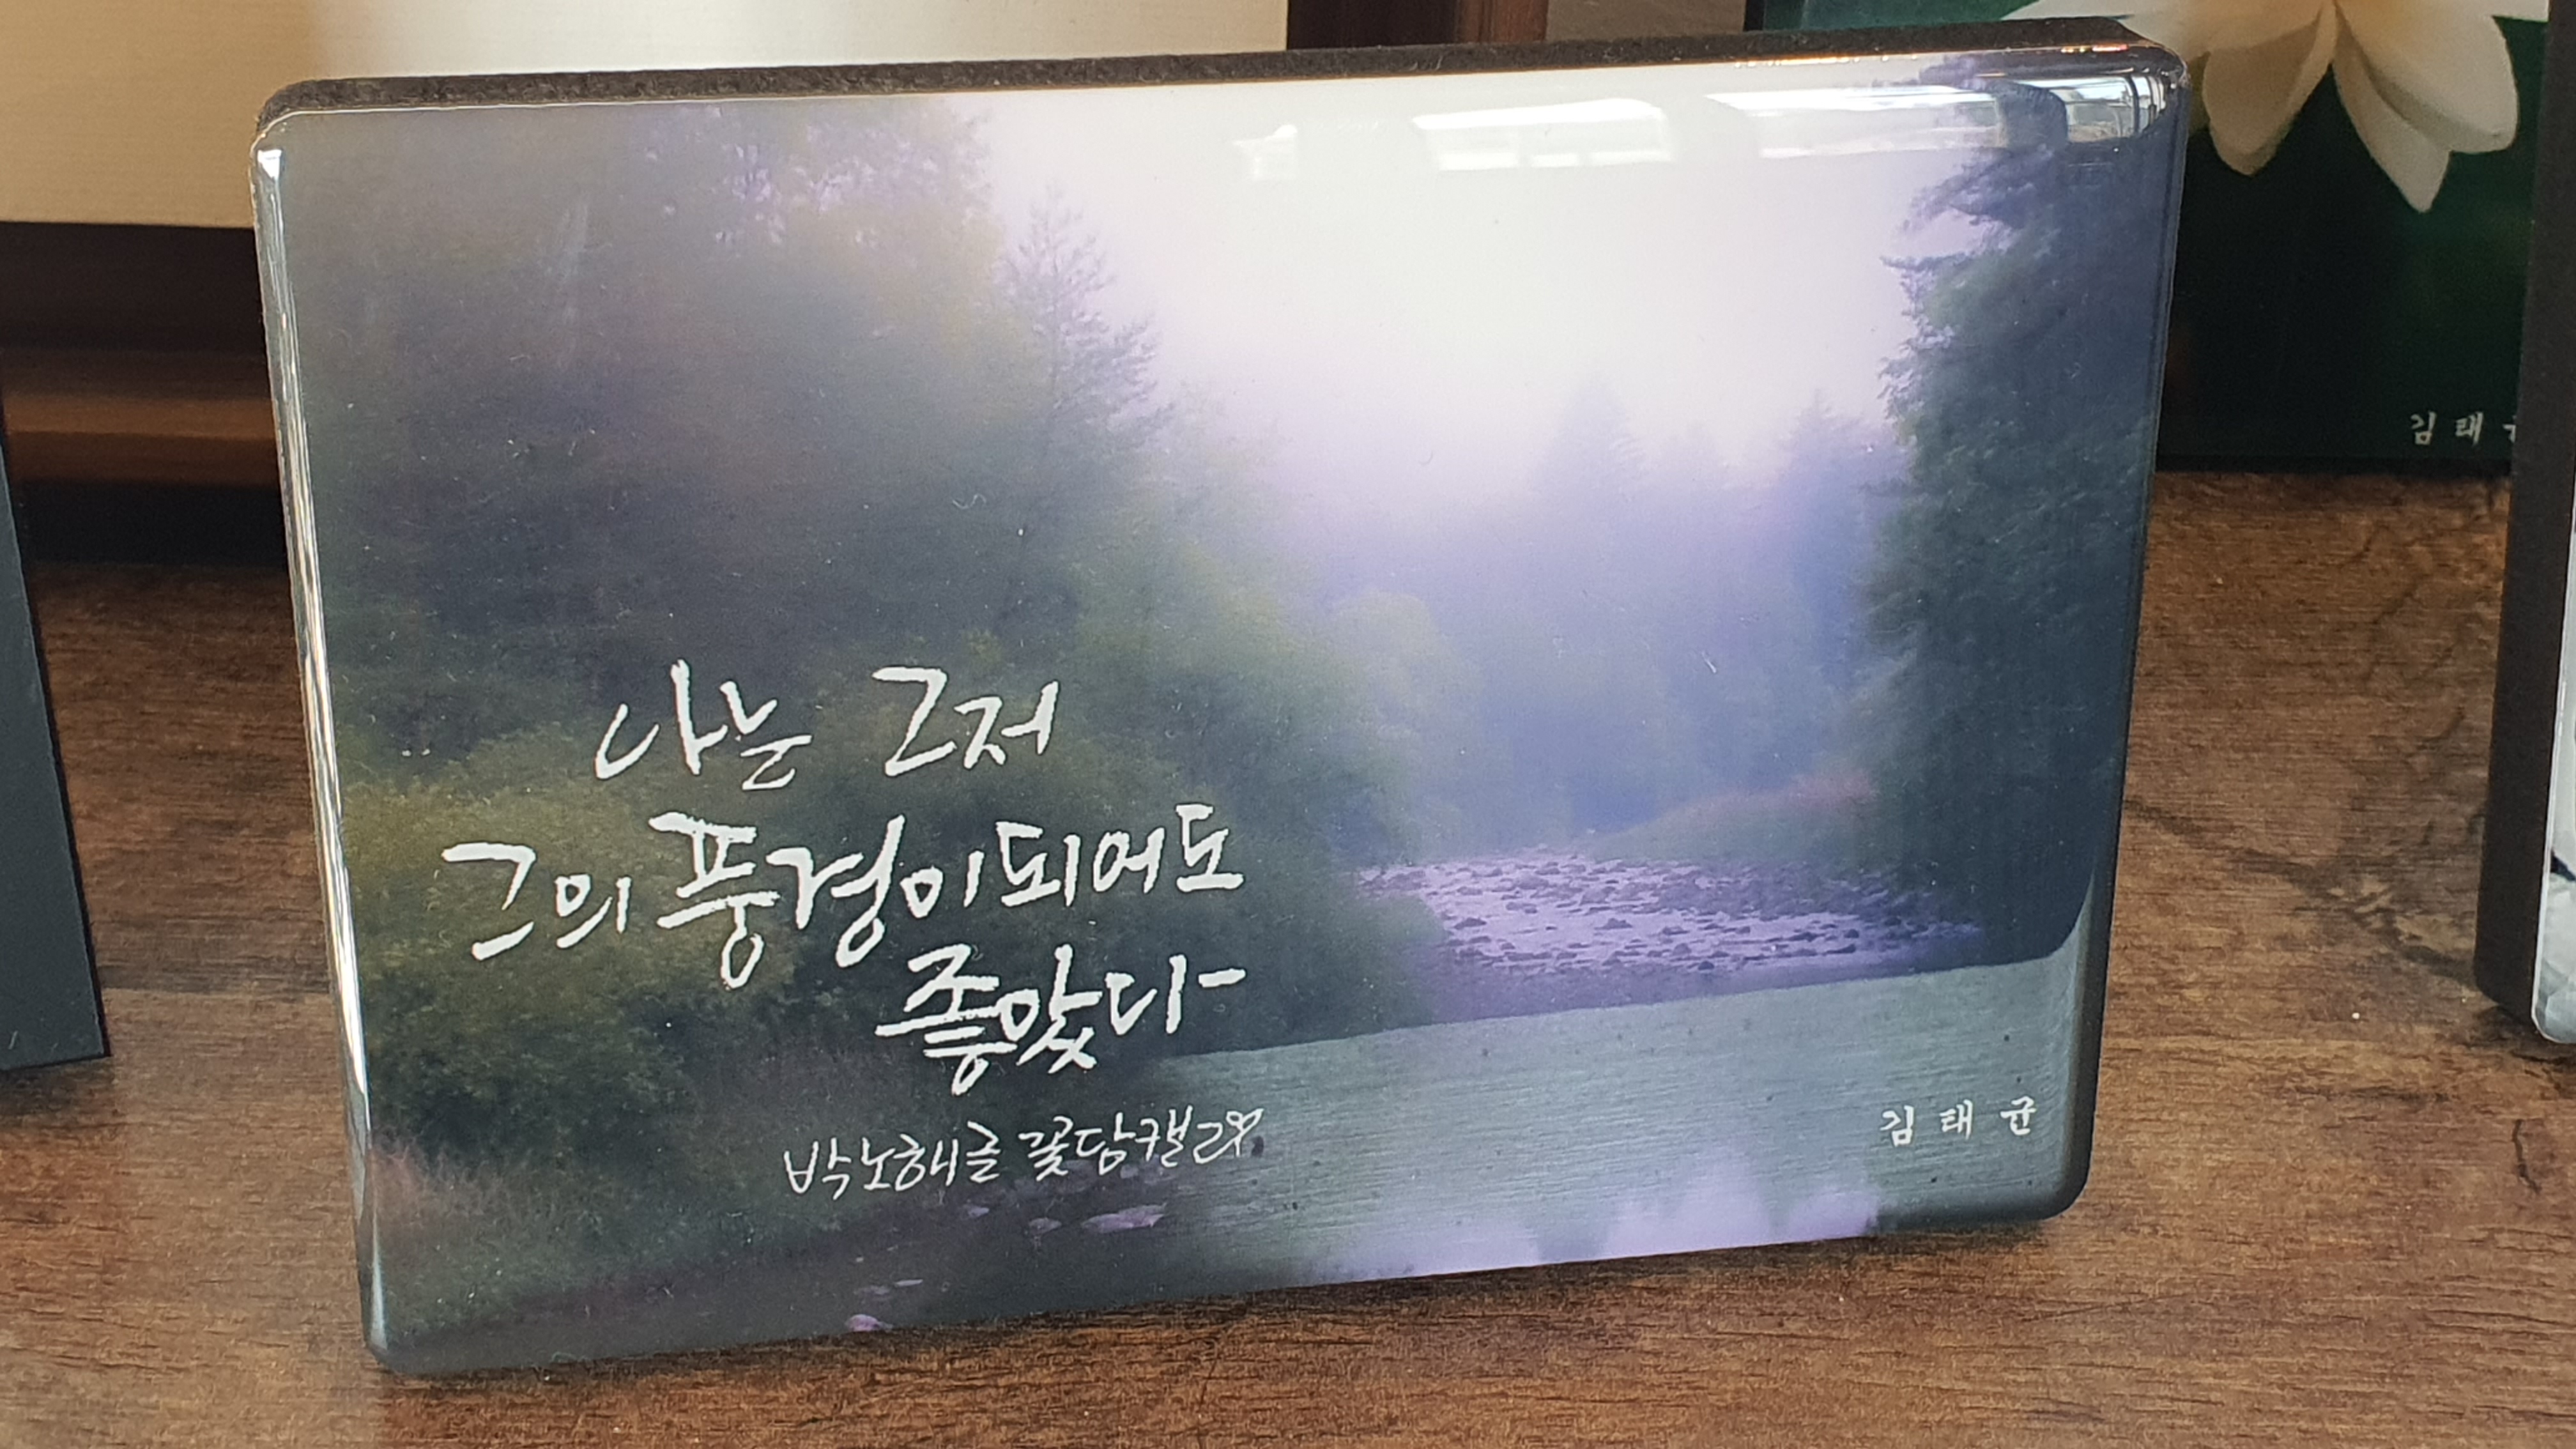 나는 그저
그의 풍경이 되어도
좋았다
박노해 글 꽃담캘리
김태균
김태